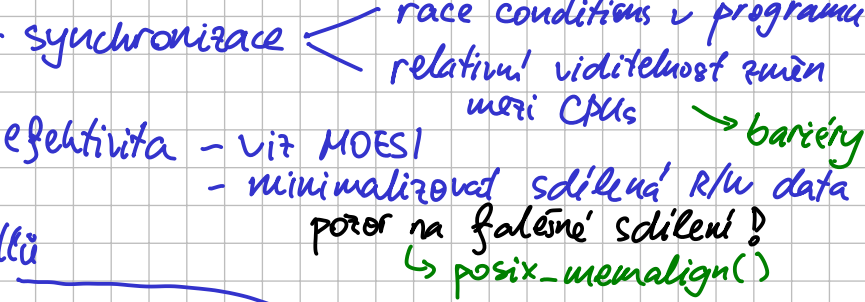 race conditions v programu
- synchronizace
relativní viditelnost změn
mezi CPUs
bariéry
efektivita - viz MOESI
- minimalizovat sdílená R/W data
pozor na falešné sdílení!
posix_memalign()